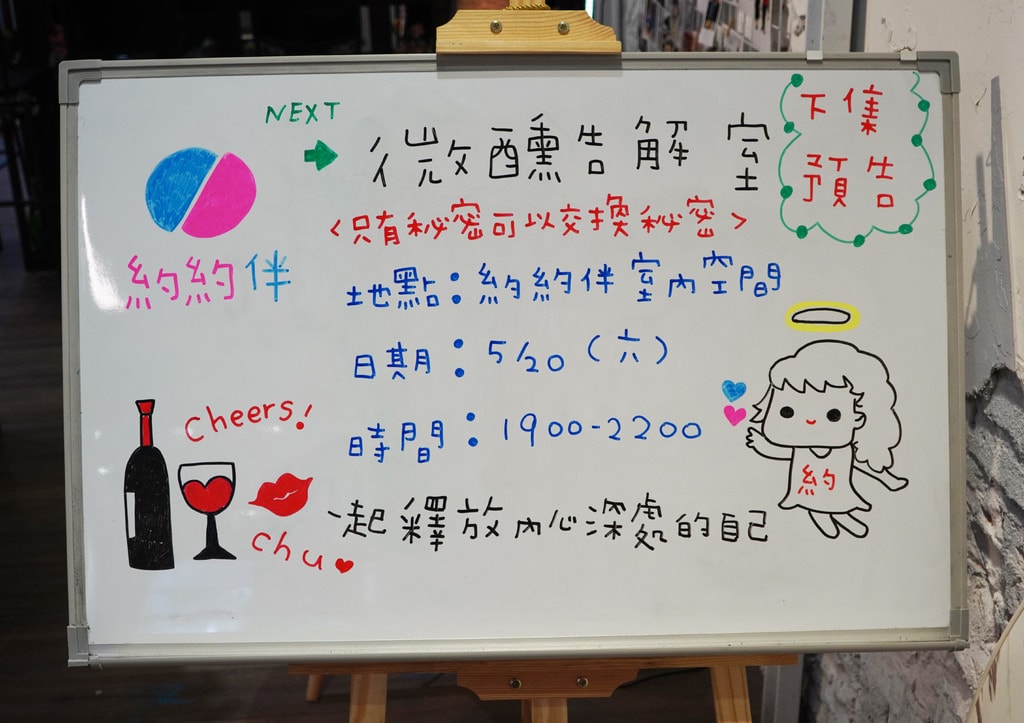 NEXT
微醺告解室
下集
預告
<只有秘密可以交換秘密>
約約伴
地點：約約伴室內空間
日期：5/20（六）
時間：1900-2200
cheers!
約
一起釋放內心深處的自己
chu